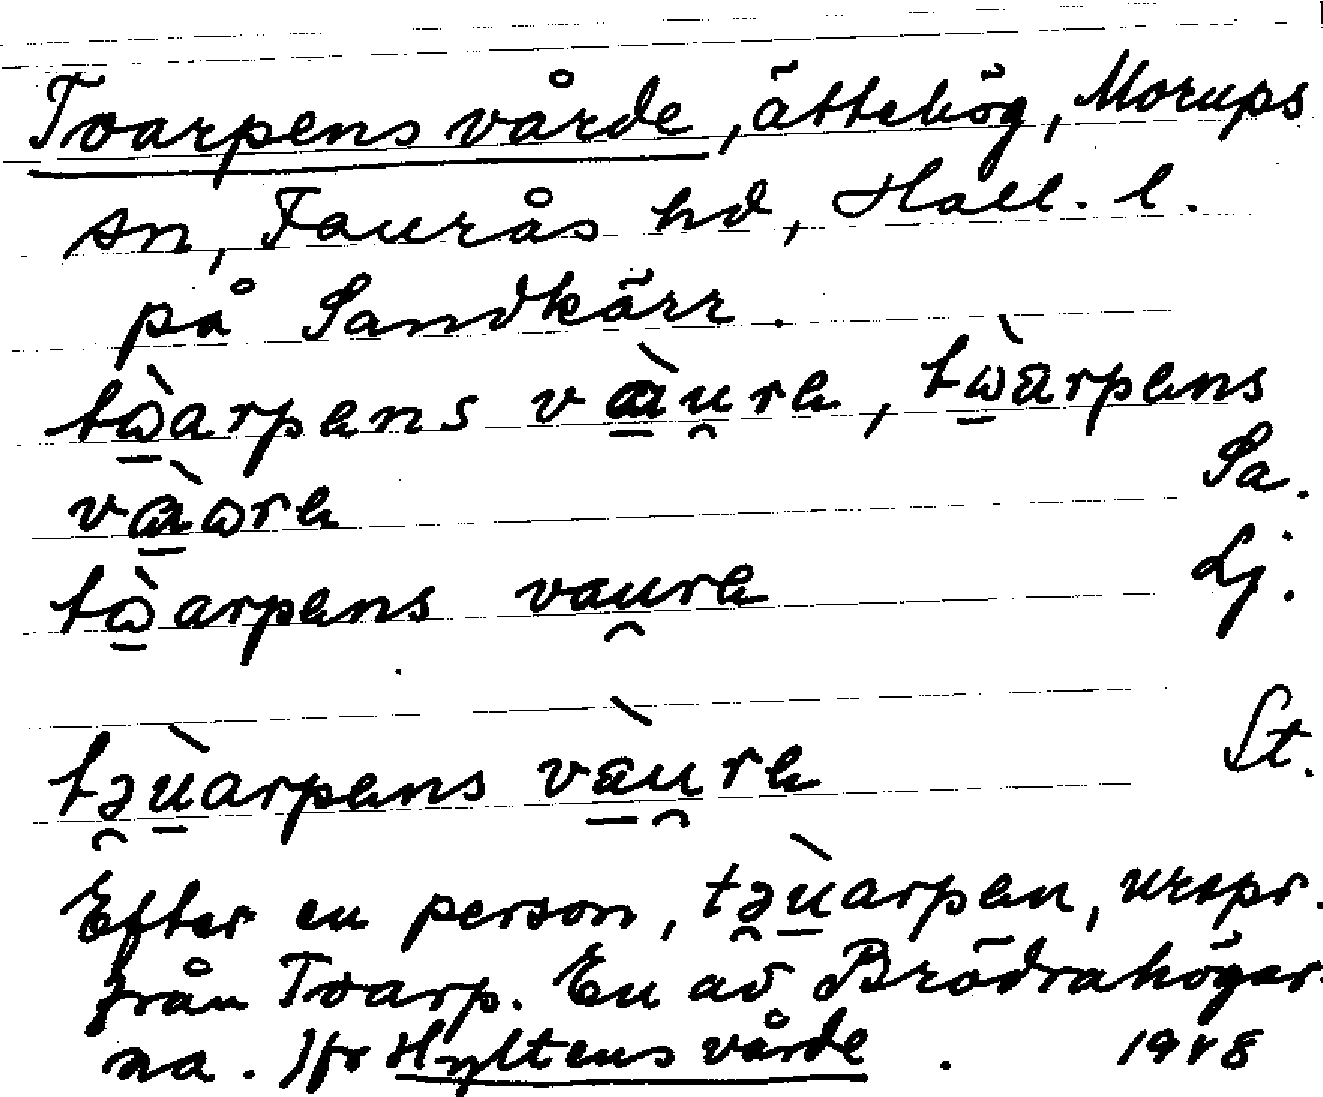 Tvarpens vårde, ättehög, Morups
sn, Faurås hd, Hall. l.
på Sandkärr.
tɷ̀arpens vɑ̀u̯re, tɷ̀arpens
vɑ̀ɷre Sa.
tɷ̀arpens vau̯re Lj.
tə̯ùarpens vàu̯re St.
Efter en person, tə̯ùarpen, urspr.
från Tvarp. En av Brödrahögar-
na. Jfr Hyltens vårde. 1948